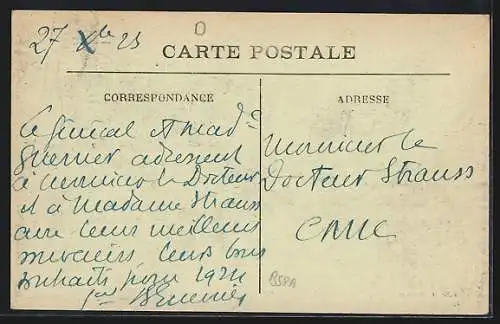 27 Xbre 23
CARTE POSTALE
CORRESPONDANCE
ADRESSE
Le Général et Mad.e
Guerrier adressent
à Monsieur le Docteur
et à Madame Strauss
avec leurs meilleurs
mercis leurs bons
souhaits pour 1924
Monsieur le
Docteur Strauss